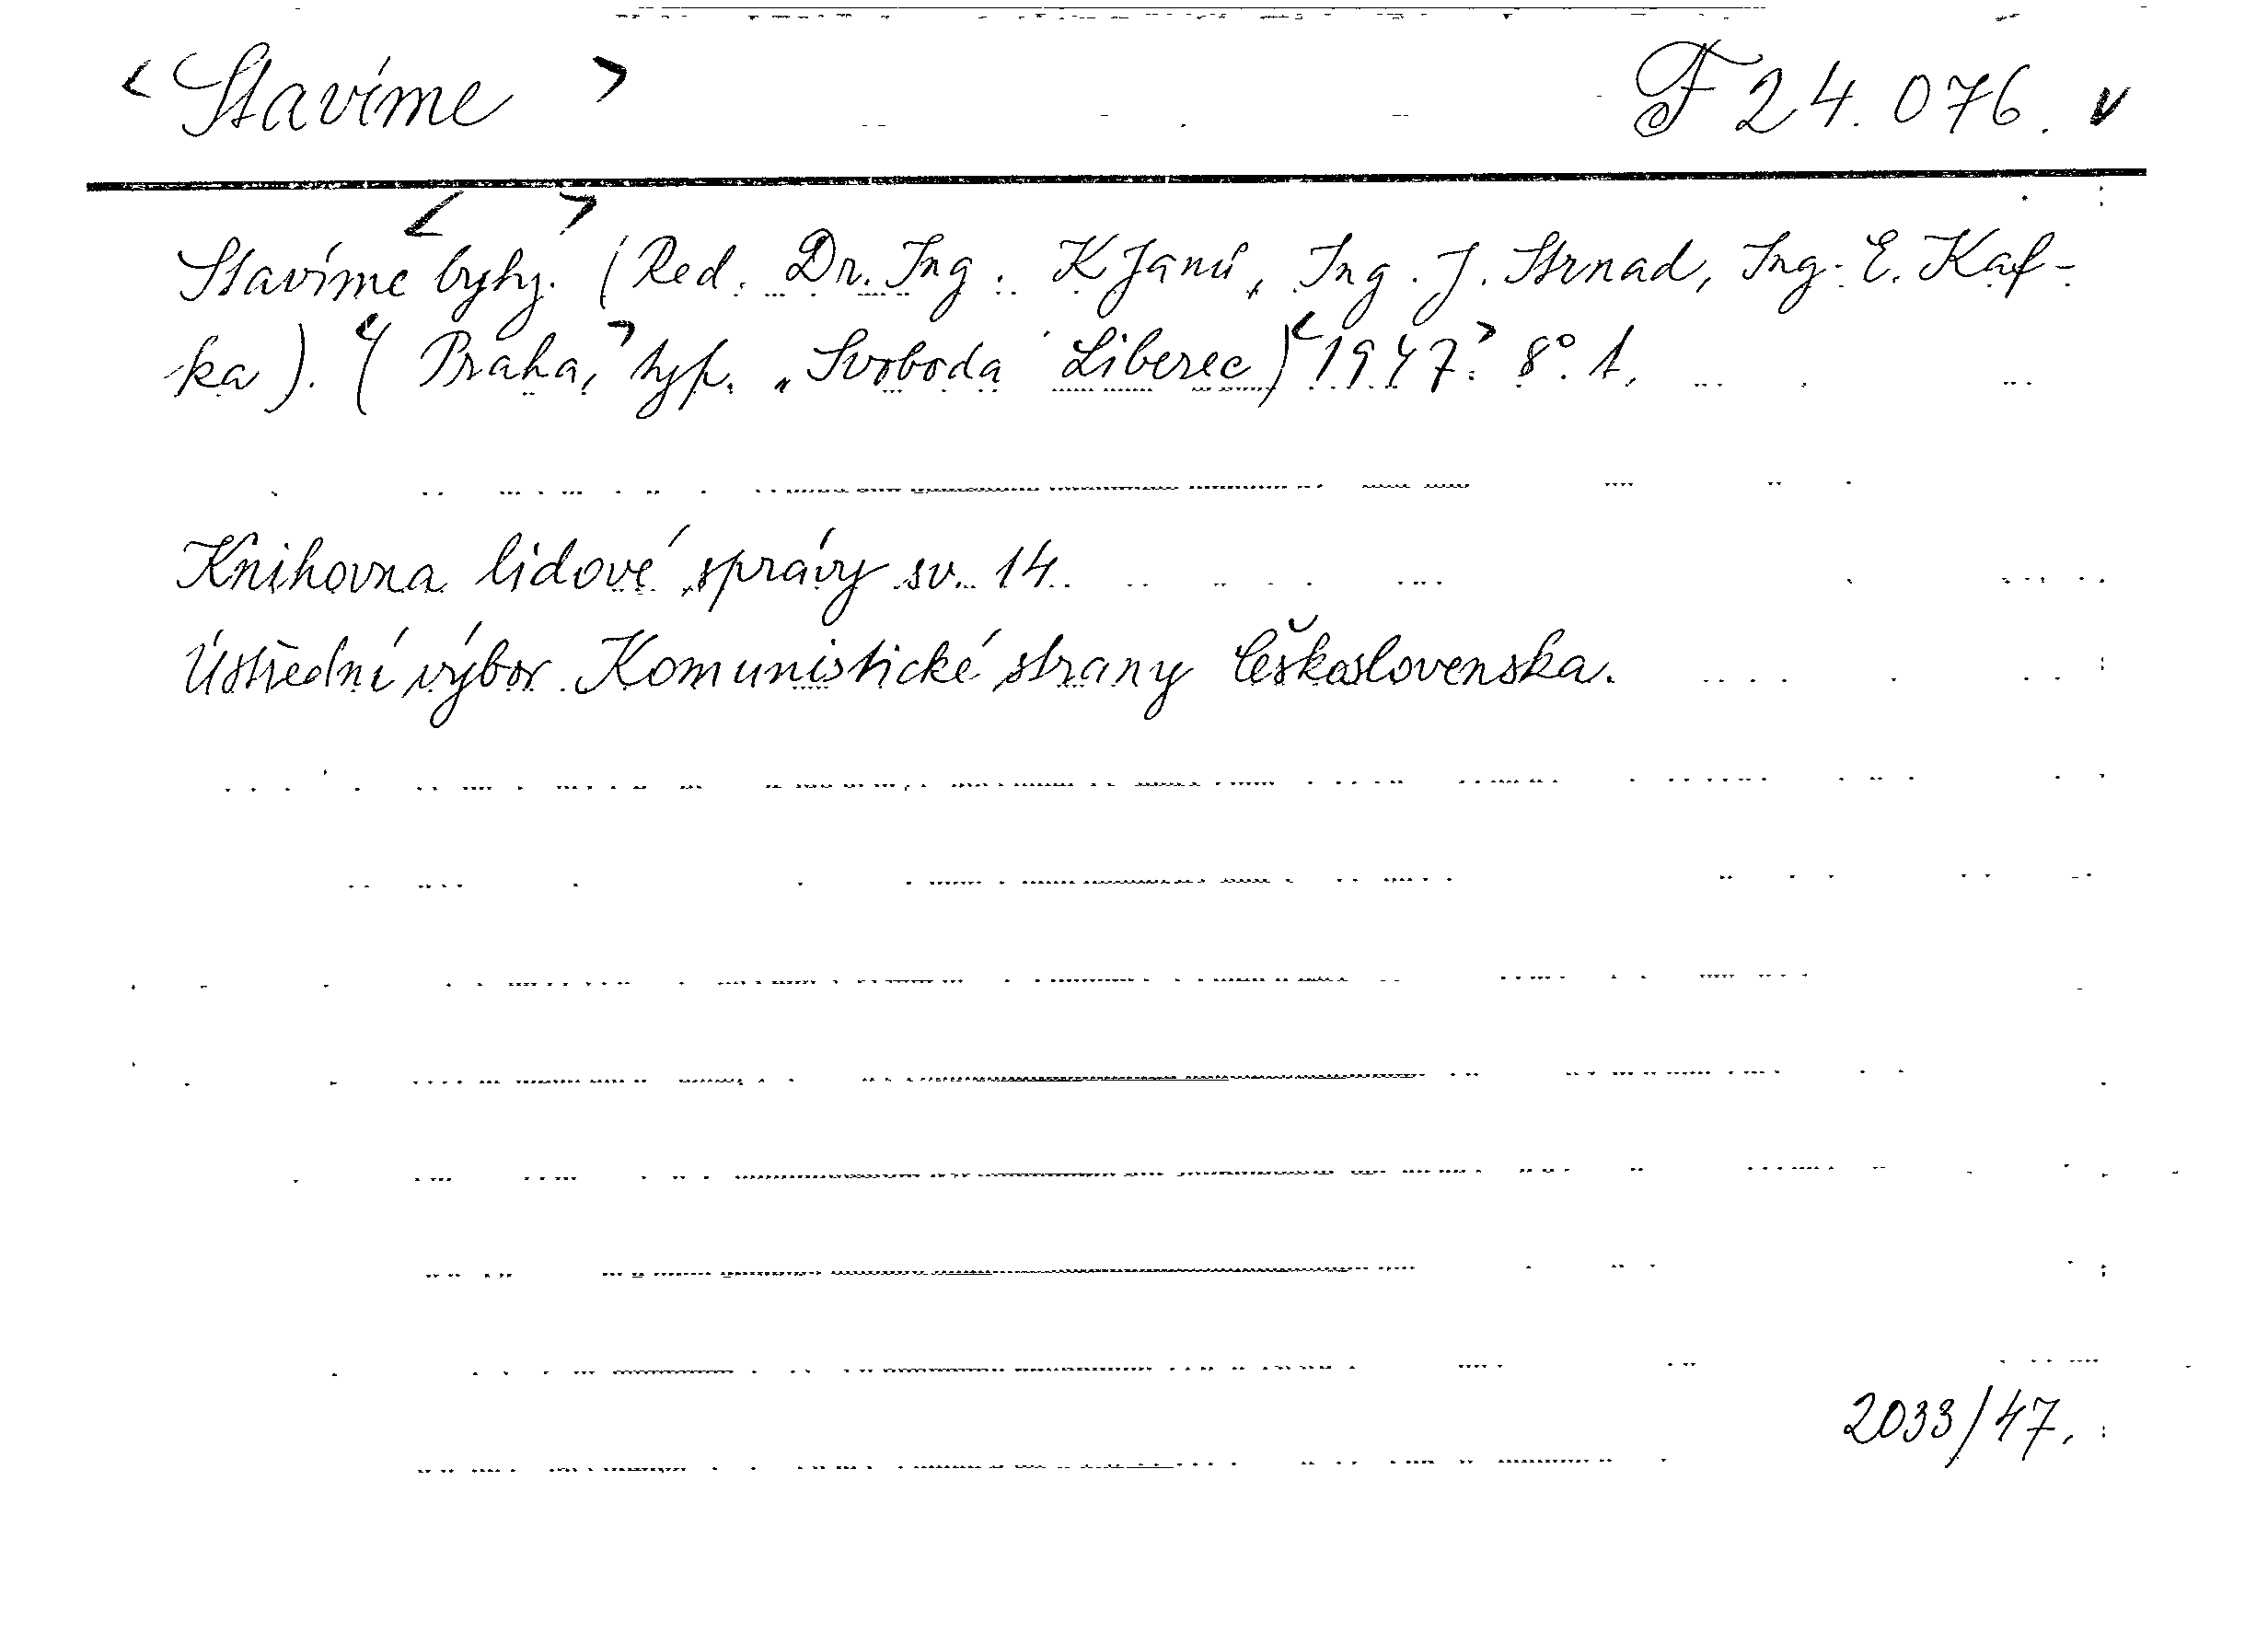 < Stavíme > F 24.076. v
Stavíme < byty. > (Red. Dr. Ing. K Janů, Ing. J. Strnad, Ing. E. Kaf-
ka). < ( Praha, > typ. „Svoboda" Liberec) < 1947. > 8°. 1.
Knihovna lidové správy sv. 14.
Ústřední výbor Komunistické strany Československa.
2033/47.